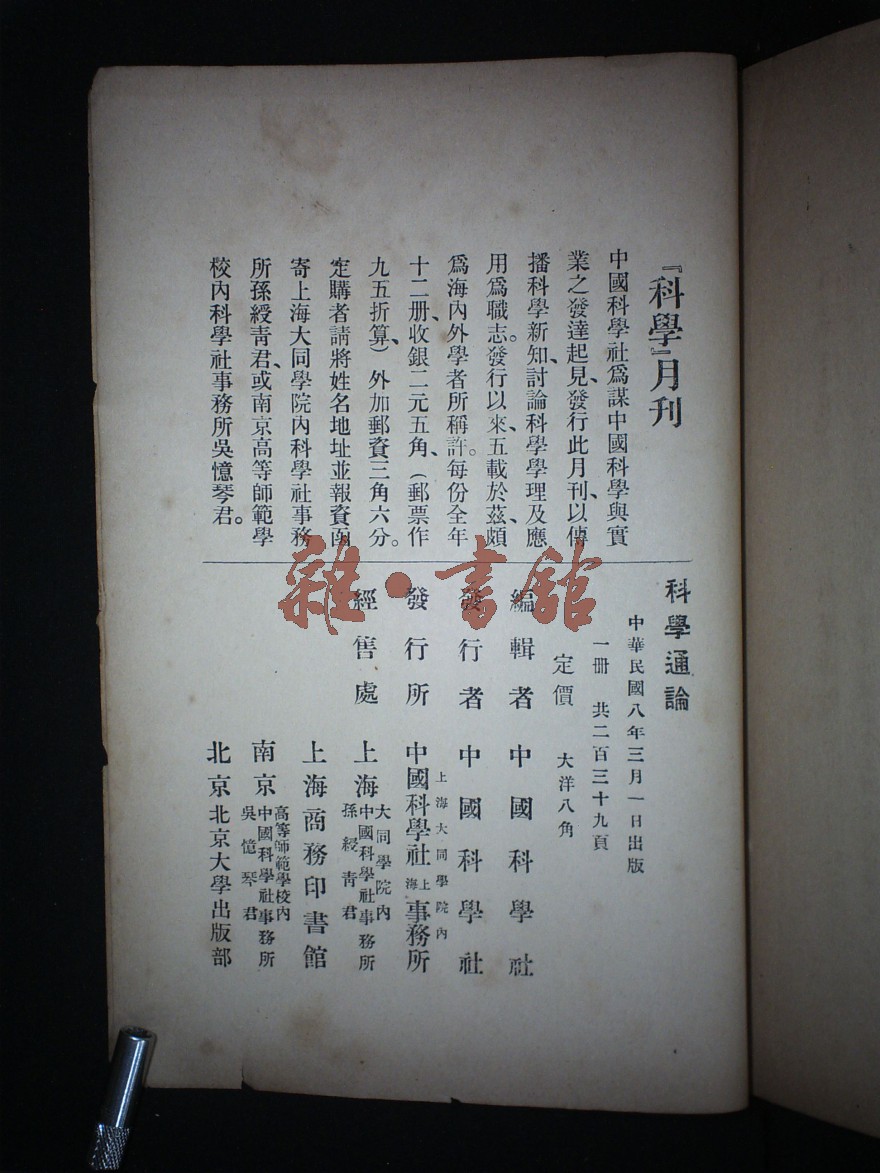 『科學』月刊
中國科學社爲謀中國科學與實
業之發達起見、發行此月刊、以傳
播科學新知、討論科學學理及應
用爲職志。發行以來、五載於茲、頗
爲海內外學者所稱許。每份全年
十二册、收銀二元五角、(郵票作
九五折算)外加郵資三角六分。
定購者請將姓名地址並報資函
寄上海大同學院內科學社事務
所孫綬靑君、或南京高等師範學
校內科學社事務所吳憶琴君。
科學通論
中華民國八年三月一日出版
一册 共二百三十九頁
定價 大洋八角
編輯者 中國科學社
發行者 中國科學社
上海大同學院內
發行所 中國科學社上海事務所
經售處 上海 大同學院內 中國科學社事務所 孫綬靑君
上海商務印書館
南京 高等師範學校內 中國科學社事務所 吳憶琴君
北京 北京大學出版部
雜·書館